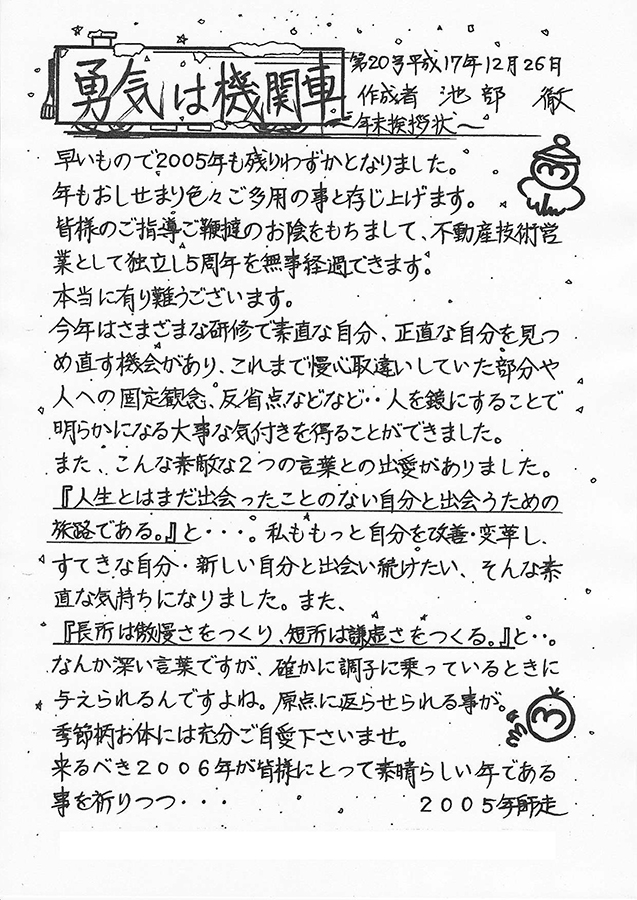 勇気は機関車
第20号平成17年12月26日
作成者 池部 徹
~年末挨拶状~
早いもので2005年も残りわずかとなりました。
年もおしせまり色々ご多用の事と存じ上げます。
皆様のご指導ご鞭撻のお陰をもちまして、不動産技術営
業として独立し5周年を無事経過できます。
本当に有り難うございます。
今年はさまざまな研修で素直な自分、正直な自分を見つ
め直す機会があり、これまで慢心取違いしていた部分や
人への固定観念、反省点などなど・・人を鏡にすることで
明らかになる大事な気付きを得ることができました。
また、こんな素敵な2つの言葉との出愛がありました。
『人生とはまだ出会ったことのない自分と出会うための
旅路である。』と・・・。私ももっと自分を改善・変革し、
すてきな自分・新しい自分と出会い続けたい、そんな素
直な気持ちになりました。また、
『長所は傲慢さをつくり、短所は謙虚さをつくる。』と・・。
なんか深い言葉ですが、確かに調子に乗っているときに
与えられるんですよね。原点に返らせられる事が。
季節柄お体には充分ご自愛下さいませ。
来るべき2006年が皆様にとって素晴らしい年である
事を祈りつつ・・・ 2005年師走